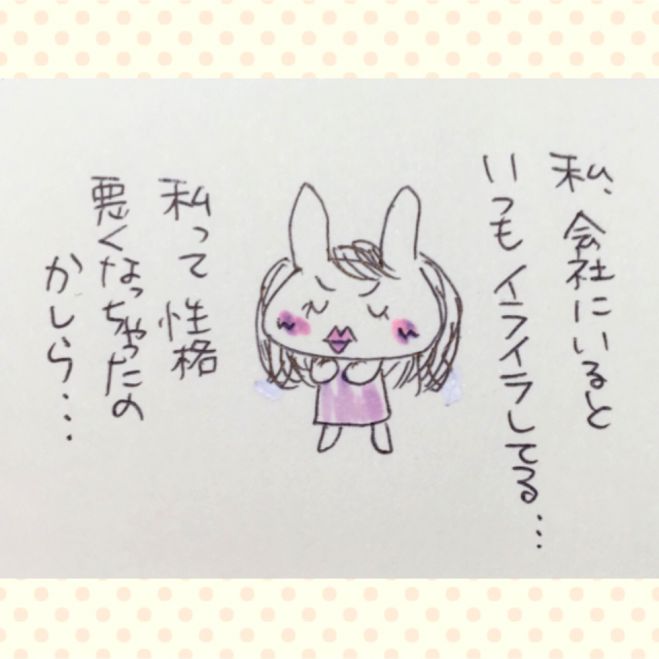 私、会社にいると
いつもイライラしてる…
私って性格
悪くなっちゃったの
かしら…